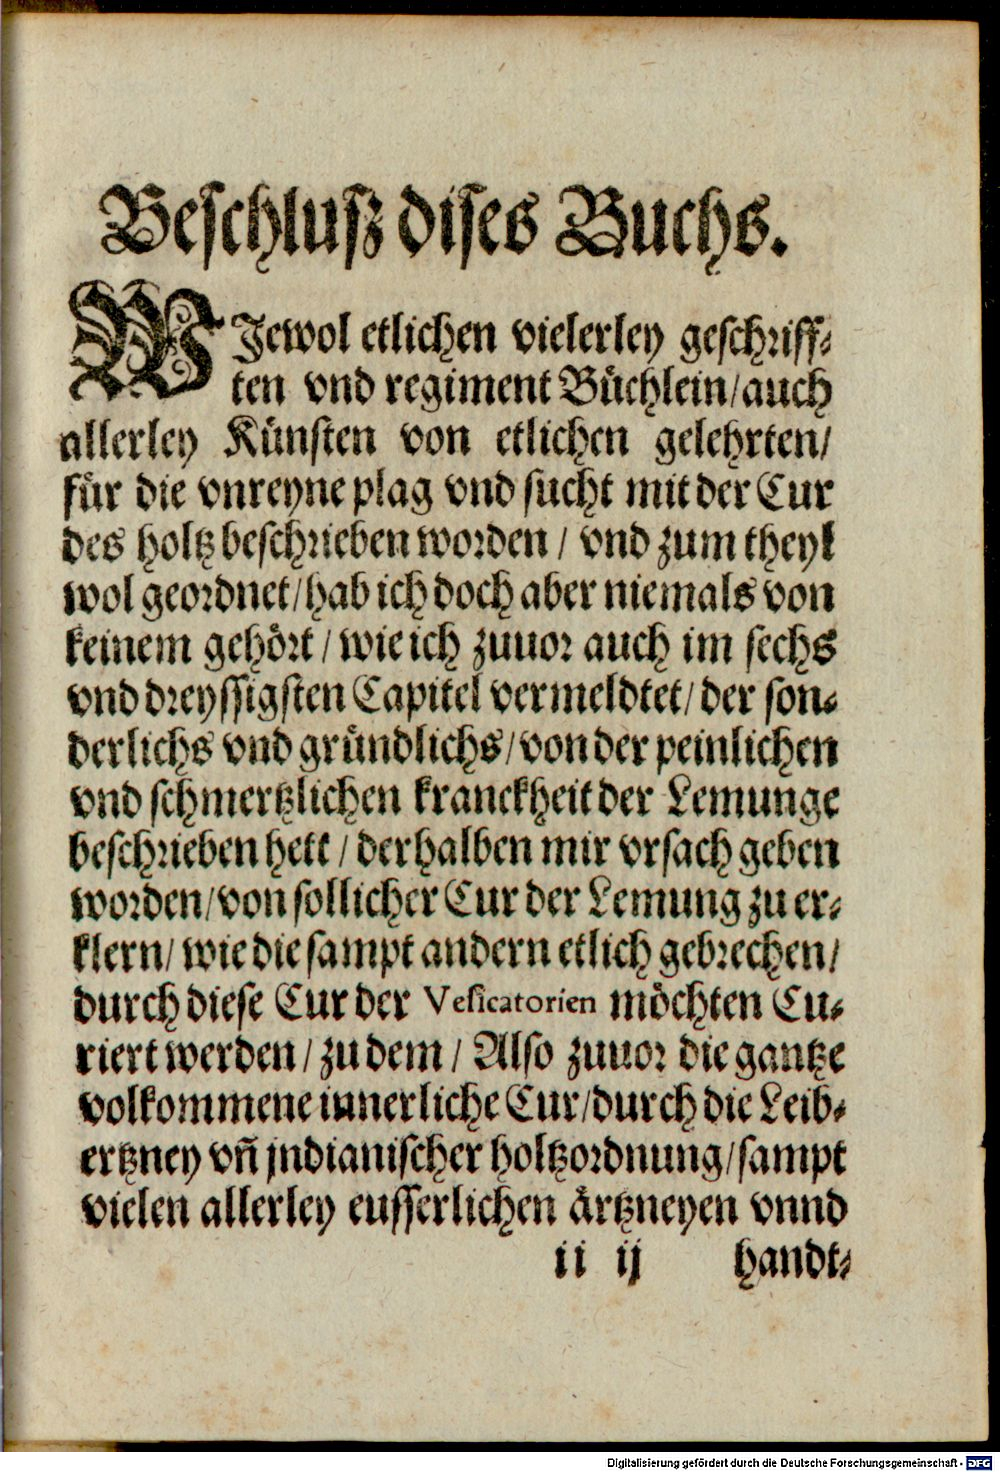 Beschluß dises Buchs.
WJewol etlichen vielerley geschriff⸗
ten vnd regiment Büchlein/auch
allerley Künsten von etlichen gelehrten/
für die vnreyne plag vnd sucht mit der Cur
des holtz beschrieben worden / vnd zum theyl
wol geordnet/hab ich doch aber niemals von
keinem gehört / wie ich zuuor auch im sechs
vnd dreyssigsten Capitel vermeldtet/ der son⸗
derlichs vnd gründlichs/von der peinlichen
vnd schmertzlichen kranckheit der Lemunge
beschrieben hett / derhalben mir vrsach geben
worden/von sollicher Cur der Lemung zu er⸗
klern/ wie die sampt andern etlich gebrechen/
durch diese Cur der Vesicatorien möchten Cu⸗
riert werden / zu dem / Also zuuor die gantze
volkommene innerliche Cur/durch die Leib⸗
ertzney vñ jndianischer holtzordnung/sampt
vielen allerley eusserlichen ärtzneyen vnnd
ii ij handt⸗
Digitalisierung gefördert durch die Deutsche Forschungsgemeinschaft - DFG